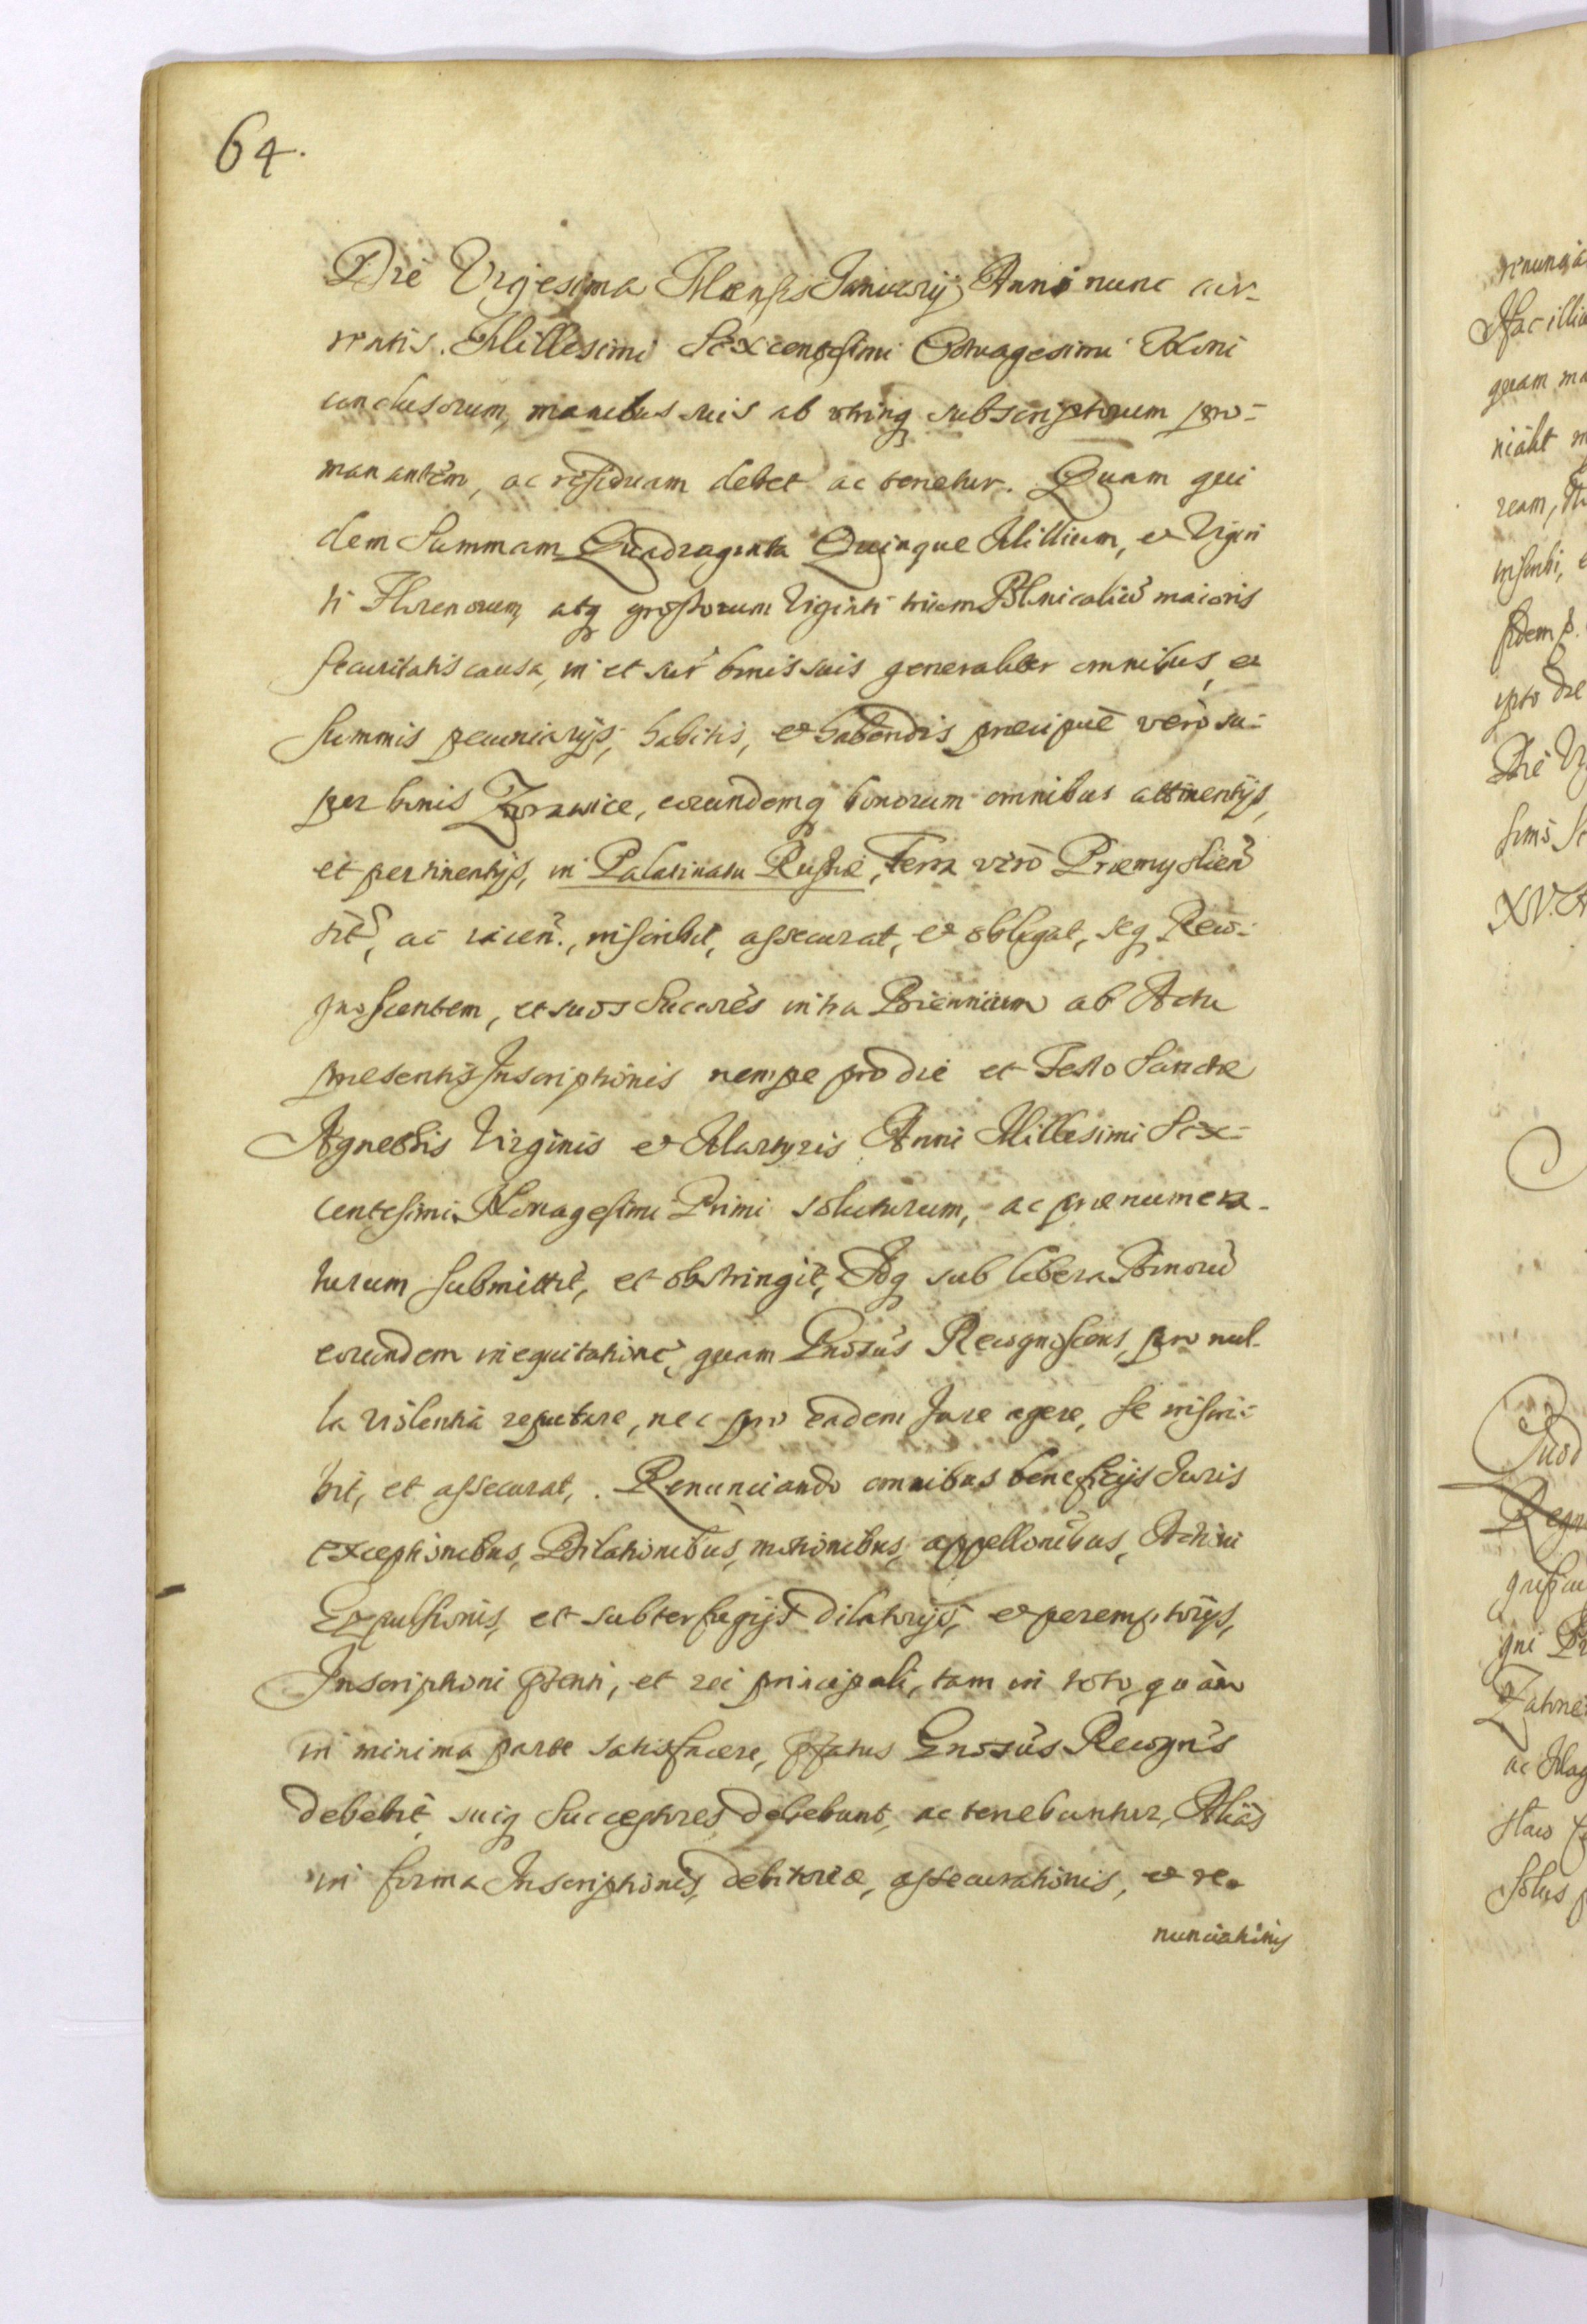 64.
Die Vigesima Mensis Januarij Anni nunc cur-
rentis. Millesimi Sexcentesimi Octuagesimi Noni
conclusorum, manibus suis ab utrinq subscriptorum pro-
manantem, ac residuam debet ac tenetur. Quam qui
dem Summam Quadraginta Quinque Millium, et Vigin
ti Florenorum, atq grossorum Viginti trium Plnicaliū maioris
securitatis causa, in et sup bonis suis generaliter omnibus, et
summis pecuniarijs, habitis, et habendis precipuè verò su-
per bonis Zorawice, eorundemq bonorum omnibus attinentijs,
et pertinentijs, in Palatinatu Russiæ, Terra verò Præmyslień
sit, ac iacen., inscribit, assecurat, et obligat, seq Reco-
gnoscentem, et suos Succres intra Biennium ab Actu
præsentis Inscriptionis nempe pro die et Festo Sanctæ
Agnethis Virginis et Martyris Anni Millesimi Sex-
centesimi Nonagesimi Primi soluturum, ac prænumera-
turum submittit, et obstringit, Idq sub libera Bonorū
eorundem inequitatione, quam Gnosus Recognoscens, pro nul-
la violentia reputare, nec pro eadem Jure agere, se inscri-
bit, et assecurat, . Renunciando omnibus beneficijs Juris
exceptionibus, Dilationibus, motionibus, appellonibus, Actioni
Expulsionis, et subterfugijs dilatorijs, et peremptorijs,
Inscriptioni pñti, et rei principali, tam in toto, quàm
in minima parte satisfacere, pfatus Gnosus Recogns
debebit, suiq Successores debebunt, ac tenebuntur, Aliàs
in forma Inscriptionis, debitoriæ, assecurationis, et re-
nunciationis